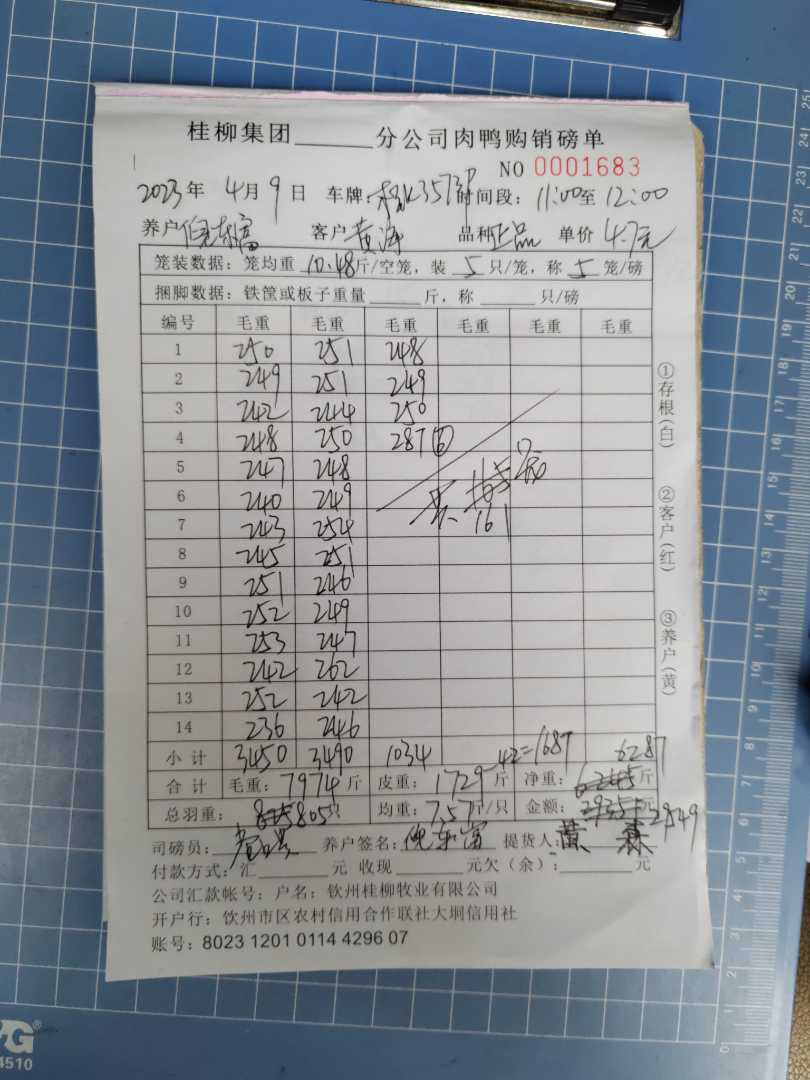 桂柳集团______分公司肉鸭购销磅单
NO 0001683
2023年 4月9日 车牌: 时间段: 11:00至12:00
养户 客户 黄海 品种 正品 单价 4.7元
笼装数据: 笼均重 10.48斤/空笼, 装 5 只/笼, 称 5 笼/磅
捆脚数据: 铁筐或板子重量______斤, 称______只/磅
编号 毛重 毛重 毛重 毛重 毛重 毛重
1 250 251 248
2 249 251 249
3 242 244 250
4 248 250 287
5 247 248
6 240 249
7 243 254
8 245 251
9 251 246
10 252 249
11 253 247
12 242 262
13 252 242
14 236 246
161
小计 3450 3490 1034 42=1687 6287
合计 毛重: 7974斤 皮重: 1729斤 净重: 6245斤
总羽重: 805只 均重: 7.57斤/只 金额: 元 29549
司磅员: 养户签名: 提货人:
付款方式: 汇______元 收现______元欠(余):______元
公司汇款帐号: 户名: 钦州桂柳牧业有限公司
开户行: 钦州市区农村信用合作联社大垌信用社
账号: 8023 1201 0114 4296 07
①存根(白) ②客户(红) ③养户(黄)
4510